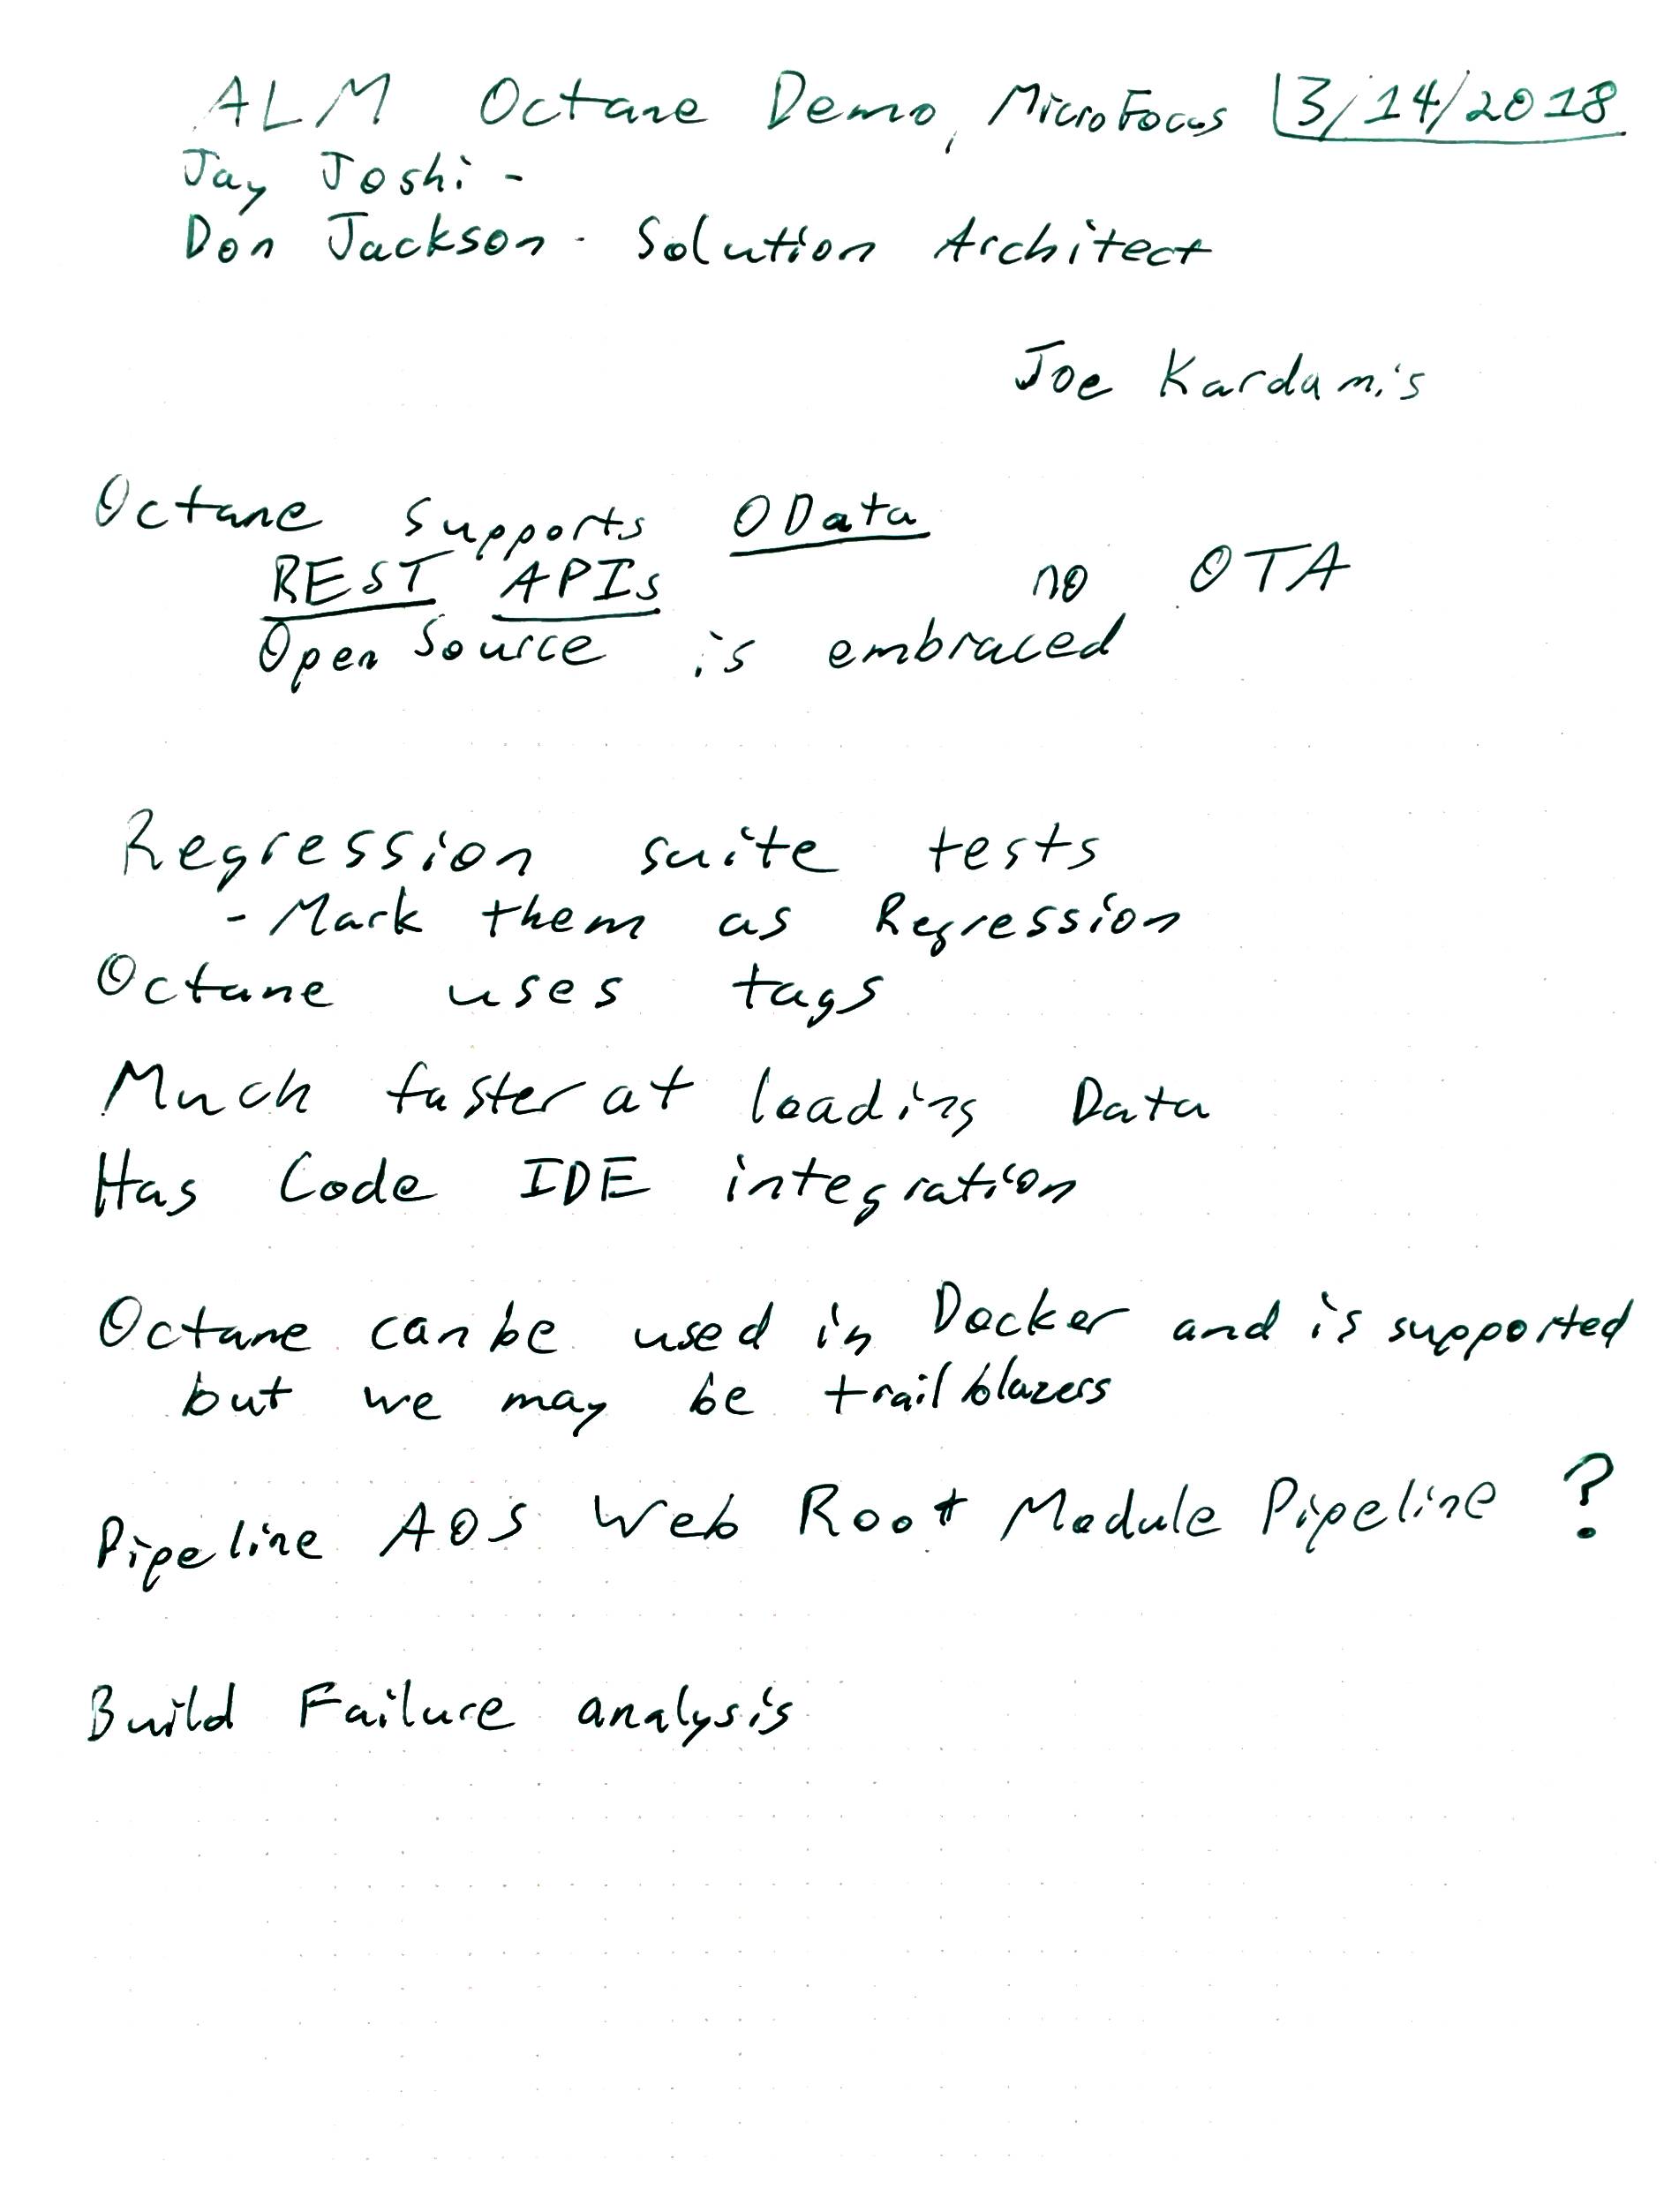 ALM Octane Demo, MicroFocus 3/14/2018
Jay Joshi -
Don Jackson - Solution Architect
Joe Kardamis
Octane supports OData
REST APIs no OTA
Open Source is embraced
Regression suite tests
- Mark them as Regression
Octane uses tags
Much faster at loading Data
Has Code IDE integration
Octane can be used in Docker and is supported
but we may be trail blazers
Pipeline AOS Web Root Module Pipeline ?
Build Failure analysis